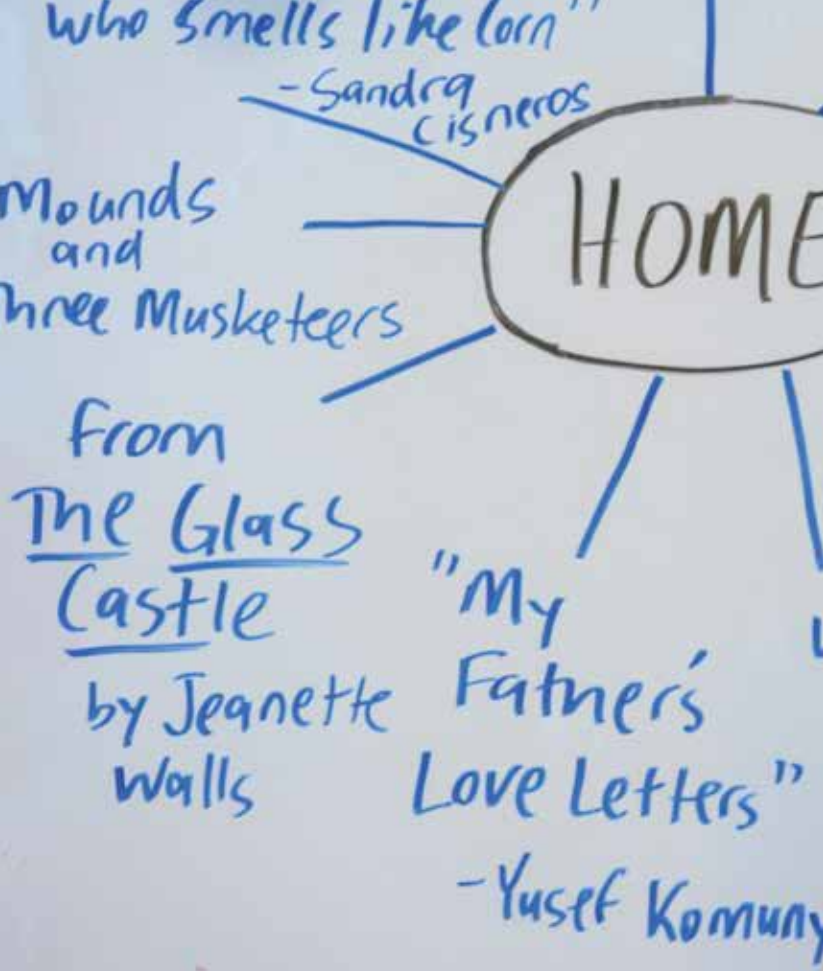 who smells like Corn"
-Sandra
Cisneros
HOME
Mounds
and
hree Musketeers
From
The Glass
Castle
by Jeanette
Walls
"My
Father's
Love Letters"
-Yusef Komuny